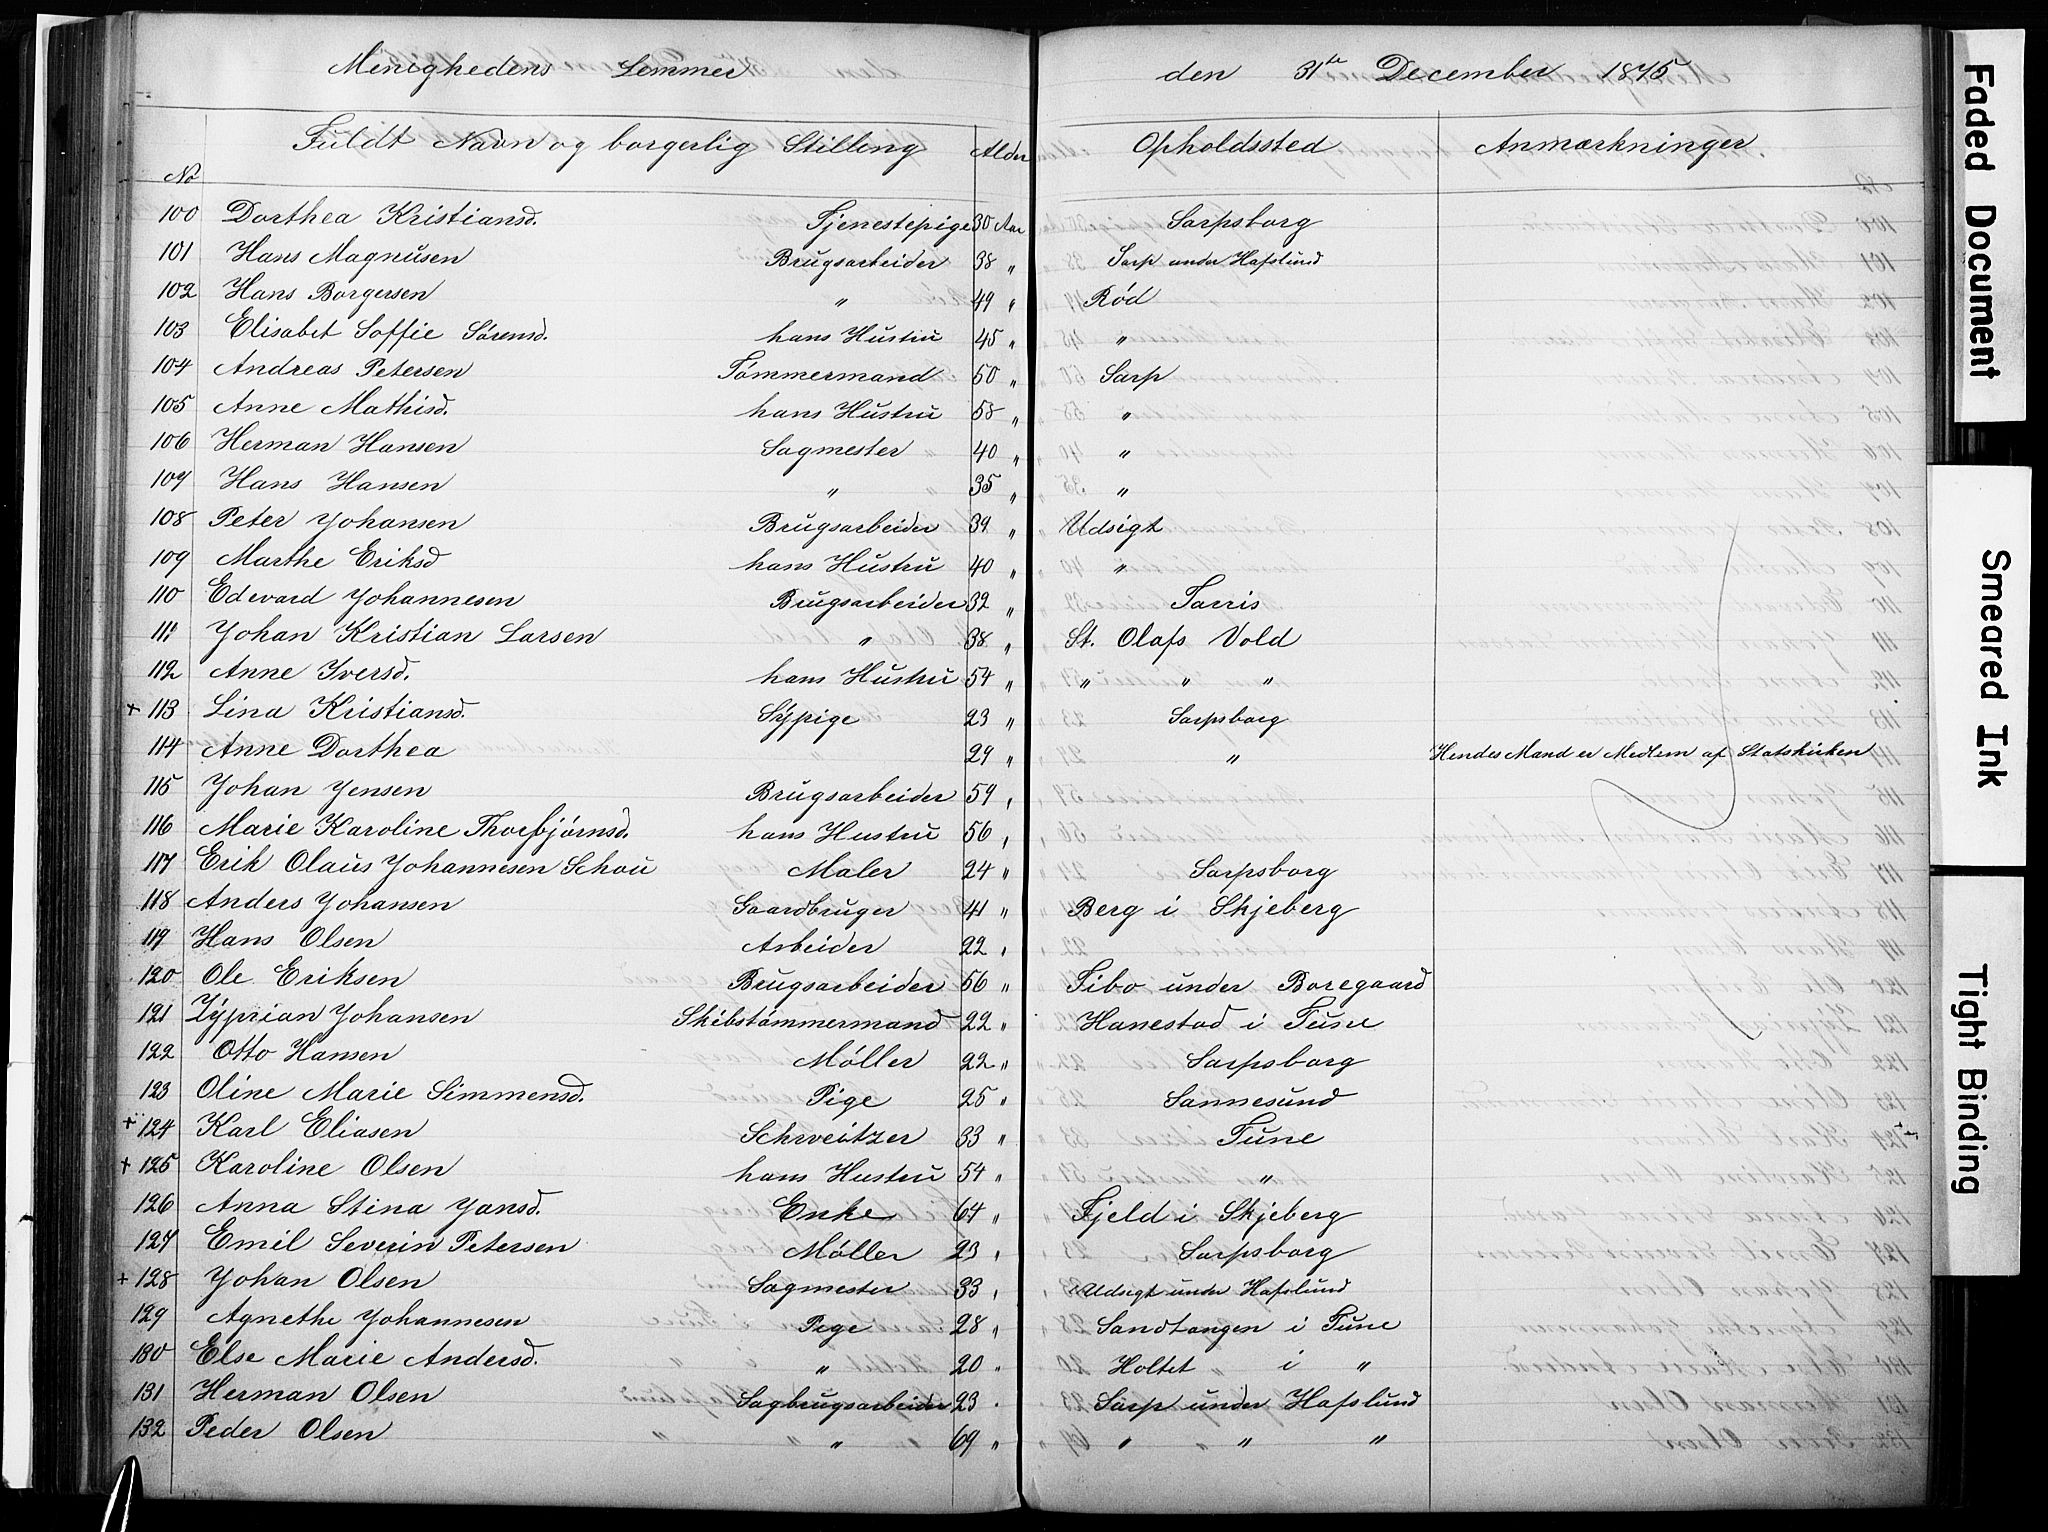 Menighedens Lemmer den 31te December 1875
No Fuldt Navn og borgerlig Stilling Alder Opholdssted Anmærkninger.
100 Dorthea Kristiansd. Tjenestepige 30 Aar Sarpsborg
101 Hans Magnusen Brugsarbeider 38 " Sarp under Hafslund
102 Hans Borgersen " 49 " Rød
103 Elisabet Soffie Sørensd. hans Hustru 45 " "
104 Andreas Petersen Tømmermand 50 " Sarp
105 Anne Mathisd. hans Hustru 58 " "
106 Herman Hansen Sagmester 40 " "
107 Hans Hansen " 35 " "
108 Peter Johansen Brugsarbeider 39 " Udsigt
109 Marthe Eriksd hans Hustru 40 " "
110 Edevard Johannesen Brugsarbeider 32 " Tarris
111 Johan Kristian Larsen " 38 " St. Olafs Vold
112 Anne Iversd. hans Hustru 54 " " " "
+ 113 Lina Kristiansd. Sypige 23 " Sarpsborg
114 Anne Dorthea " 29 " " Hendes Mand er Medlem af Statskirken
115 Johan Jensen Brugsarbeider 59 "
116 Marie Karoline Thorbjørnsd. hans Hustru 56 "
117 Erik Olaus Johannesen Schou Maler 24 " Sarpsborg
118 Anders Johansen Gaardbruger 41 " Berg i Skjeberg
119 Hans Olsen Arbeider 22 "
120 Ole Eriksen Brugsarbeider 56 " Tibo under Boregaard
121 Zyprian Johansen Skibstømmermand 22 " Hanestad i Tune
122 Otto Hansen Møller 22 " Sarpsborg
123 Oline Marie Simmensd. Pige 25 " Sannesund
+ 124 Karl Eliasen Schweitzer 33 " Tune
+ 125 Karoline Olsen hans Hustru 54 " "
126 Anna Stina Jansd. Enke 64 " Fjeld i Skjeberg
127 Emil Severin Petersen Møller 23 " Sarpsborg
+ 128 Johan Olsen Sagmester 33 " Udsigt under Hafslund
129 Agnethe Johannesen Pige 28 " Sandtangen i Tune
130 Else Marie Andersd. " 20 " Holtet i "
131 Herman Olsen Sagbrugsarbeider 23 " Sarp under Hafslund
132 Peder Olsen " 69 " " " "
Faded Document
Smeared Ink
Tight Binding